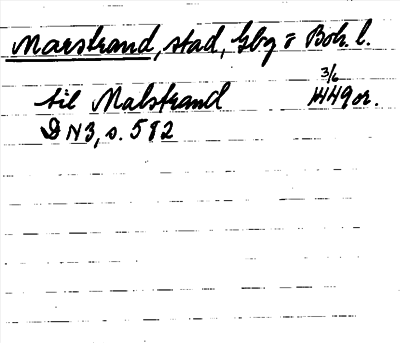 Marstrand, stad, Gbg o Boh. l.
3/6
til Malstrand 1449 or.
DN 3, s. 582